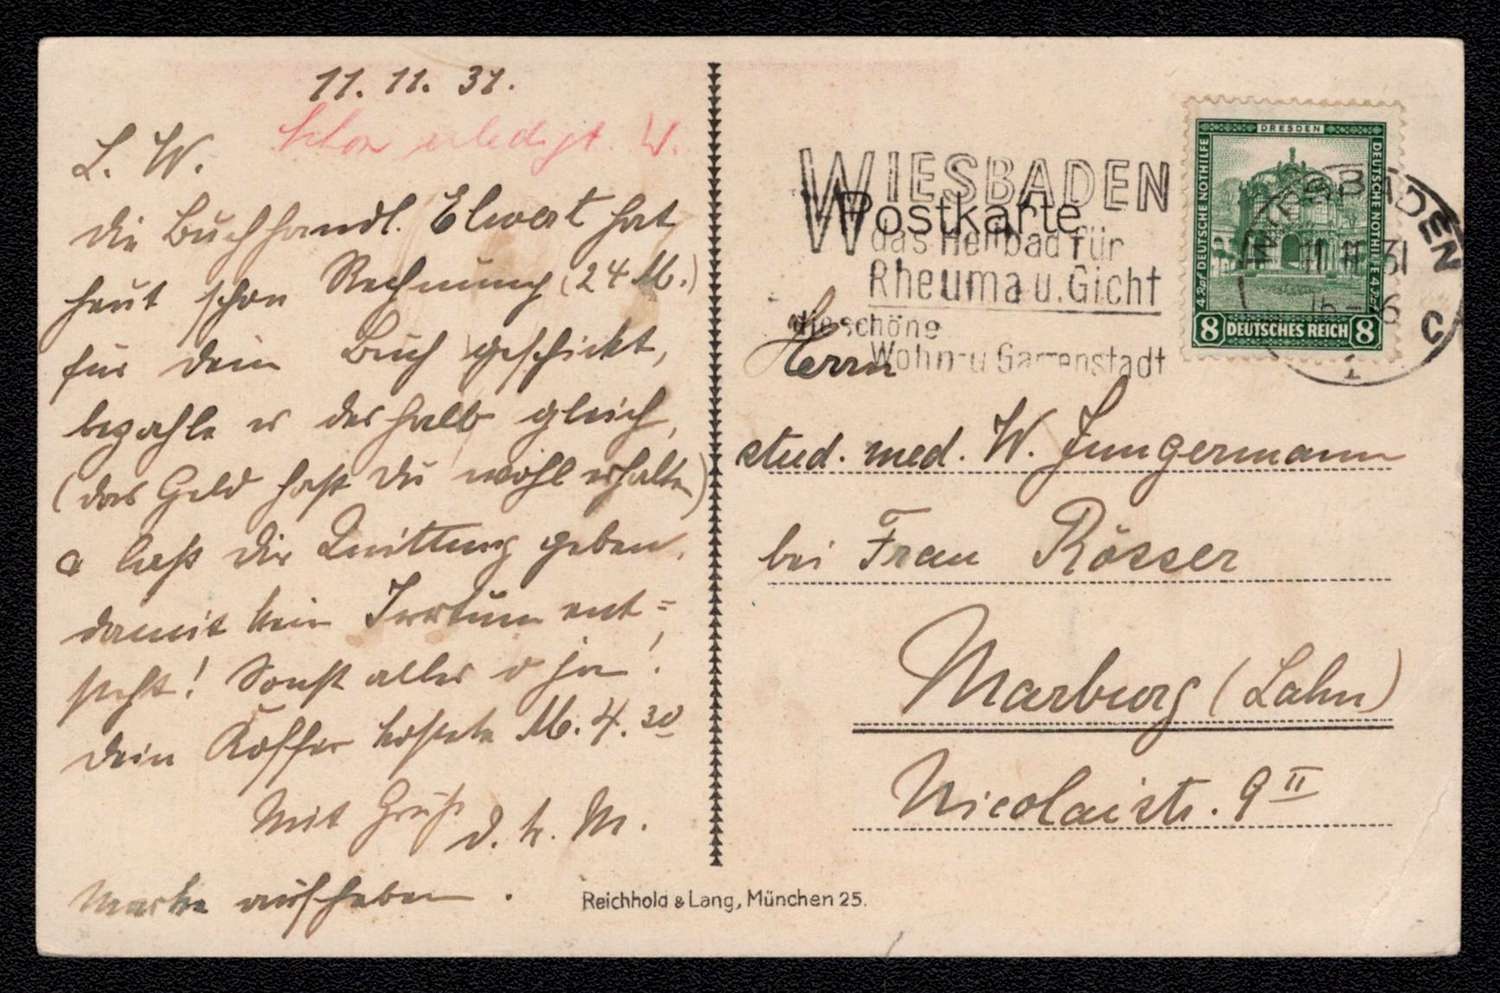 11. 11. 31.
Schon erledigt. W.
L. W.
die Buchhandl. Elwert hat
heut schon Rechnung (24 M.)
für dein Buch geschickt,
bezahle es deshalb gleich,
(das Geld hast Du wohl erhalten)
& laß dir Quittung geben,
damit kein Irrtum ent=
steht! Sonst alles ja!
Dein Koffer kostete M. 4.30
Mit Gruß
d. M.
Marke aufheben.
WIESBADEN
Postkarte
das Heilbad für
Rheuma u. Gicht
die schöne
Wohn- u Gartenstadt
DRESDEN
DEUTSCHE NOTHILFE
DEUTSCHE NOTHILFE
8 DEUTSCHES REICH 8
WIESBADEN
11.11.31
C
1
Herrn
stud. med. W. Jungermann
bei Frau Rösser
Marburg (Lahn)
Nicolaistr. 9 II
Reichhold & Lang, München 25.